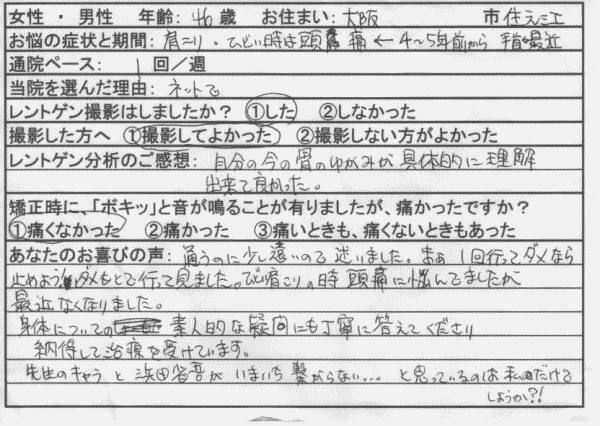 女性 ・ 男性 年齢: 46 歳 お住まい: 大阪 市住之江
お悩の症状と期間: 肩こり・ひどい時は頭痛 ← 4～5年前から 最近
通院ペース: 1 回／週
当院を選んだ理由: ネットで
レントゲン撮影はしましたか? ①した ②しなかった
撮影した方へ ①撮影してよかった ②撮影しない方がよかった
レントゲン分析のご感想: 自分の今の骨のゆがみが具体的に理解
出来て良かった。
矯正時に、「ボキッ」と音が鳴ることが有りましたが、痛かったですか?
①痛くなかった ②痛かった ③痛いときも、痛くないときもあった
あなたのお喜びの声: 通うのに少し遠いので迷いました。まあ1回行ってダメなら
止めよう ダメもとで行って見ました。ひどい肩こりの時頭痛に悩んでましたが
最近なくなりました。
身体についての 素人的な疑問にも丁寧に答えてくださり
納得して治療を受けています。
先生のキャラと浜田省吾がいまいち繋がらない… と思っているのは私だけで
しょうか?!